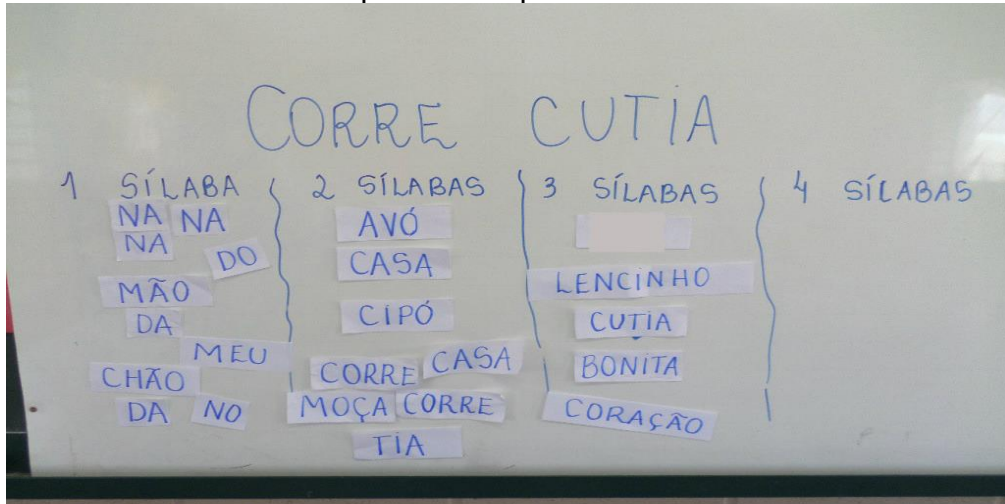 CORRE CUTIA
1 SÍLABA
NA NA
NA
DO
MÃO
DA
MEU
CHÃO
DA NO
2 SÍLABAS
AVÓ
CASA
CIPÓ
CORRE CASA
MOÇA CORRE
TIA
3 SÍLABAS
LENCINHO
CUTIA
BONITA
CORAÇÃO
4 SÍLABAS